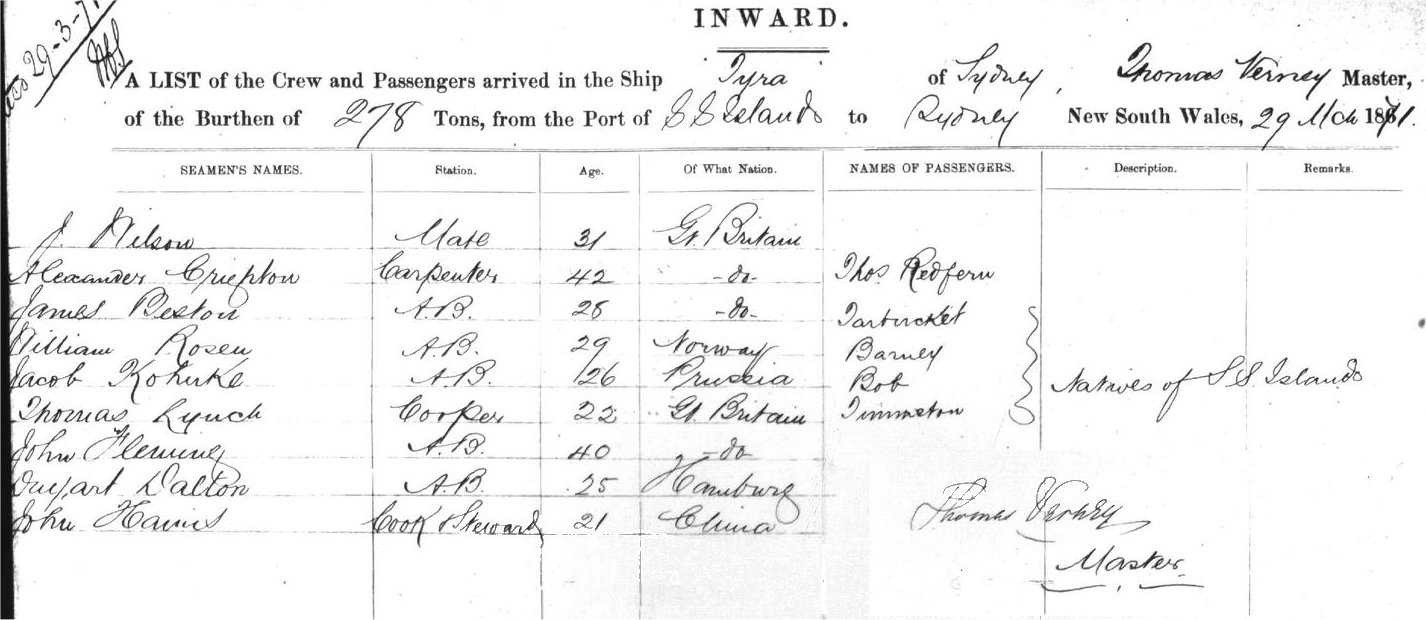 29-3-71
INWARD.
A LIST of the Crew and Passengers arrived in the Ship Tyra of Sydney, Thomas Verney Master,
of the Burthen of 278 Tons, from the Port of S S Islands to Sydney New South Wales, 29 Mch 1871.
SEAMEN'S NAMES. Station. Age. Of What Nation. NAMES OF PASSENGERS. Description. Remarks.
J. Wilson Mate 31 Gt. Britain
Alexander Carpenter 42 -do- Thos Redfern
James Beston A.B. 28 -do-
William Rosen A.B. 29 Norway Barney
Jacob A.B. 26 Prussia Bob Natives of S S Islands
Thomas Lynch Cooper 22 Gt. Britain
John Fleming A.B. 40 -do-
Dalton A.B. 25 Hamburg
John Cook & Steward 21 China Thomas Verney
Master